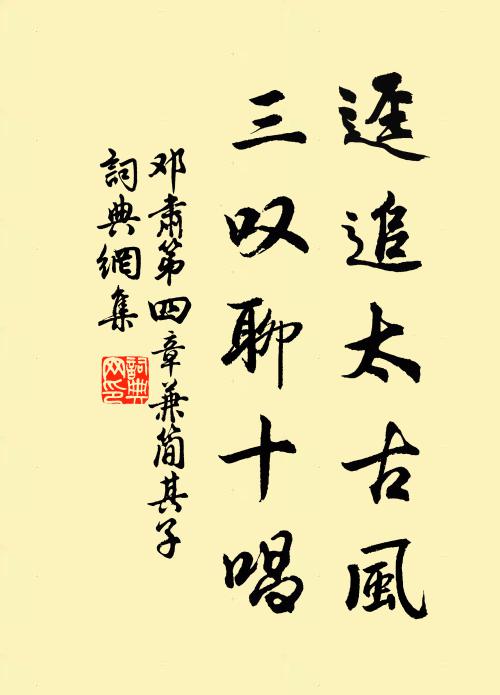 逕追太古風
三叹聊十唱
邓肅第四章兼简其子
詞典網集
詞典网印